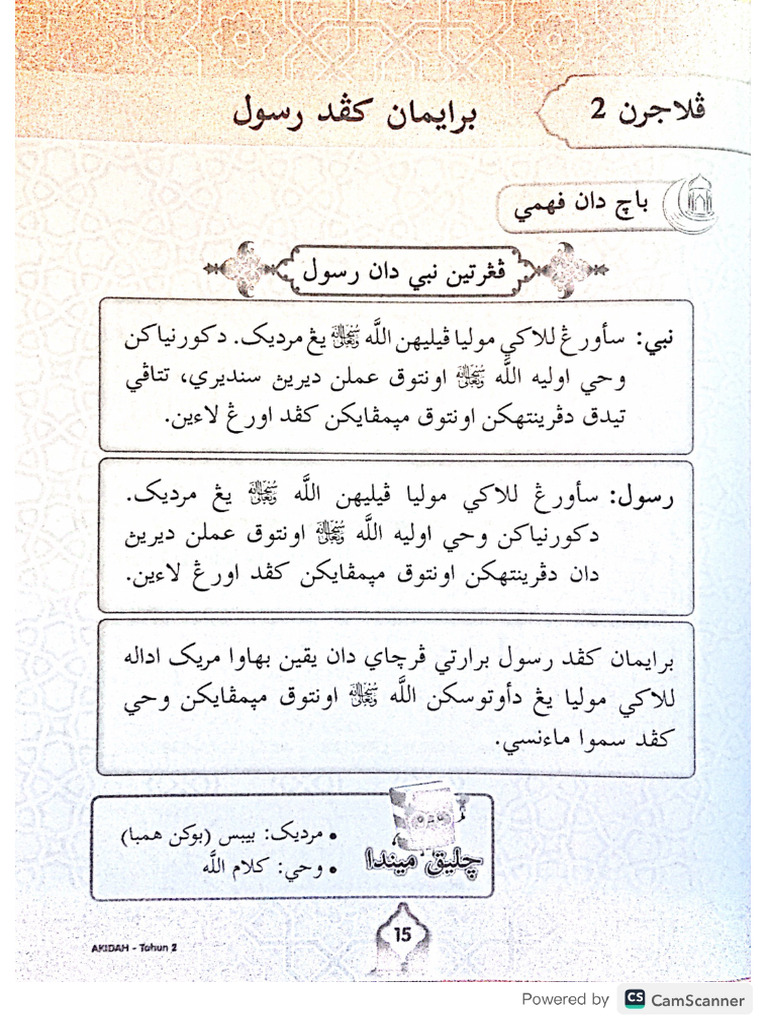 ڤلاجرن 2
برايمان کڤد رسول
باچ دان فهمي
ڤڠرتين نبي دان رسول
نبي: سأورڠ للاکي موليا ڤيليهن الله ﷻ يڠ مرديک. دکورنياکن
وحي اوليه الله ﷻ اونتوق عملن ديريڽ سنديري، تتاڤي
تيدق دڤرينتهکن اونتوق مڽمڤايکن کڤد اورڠ لاءين.
رسول: سأورڠ للاکي موليا ڤيليهن الله ﷻ يڠ مرديک.
دکورنياکن وحي اوليه الله ﷻ اونتوق عملن ديريڽ
دان دڤرينتهکن اونتوق مڽمڤايکن کڤد اورڠ لاءين.
برايمان کڤد رسول برارتي ڤرچاي دان يقين بهاوا مريک اداله
للاکي موليا يڠ دأوتوسکن الله ﷻ اونتوق مڽمڤايکن وحي
کڤد سموا ماءنسي.
چليق ميندا
• مرديک: بيبس (بوکن همبا)
• وحي: کلام الله
15
AKIDAH - Tahun 2
Powered by CS CamScanner